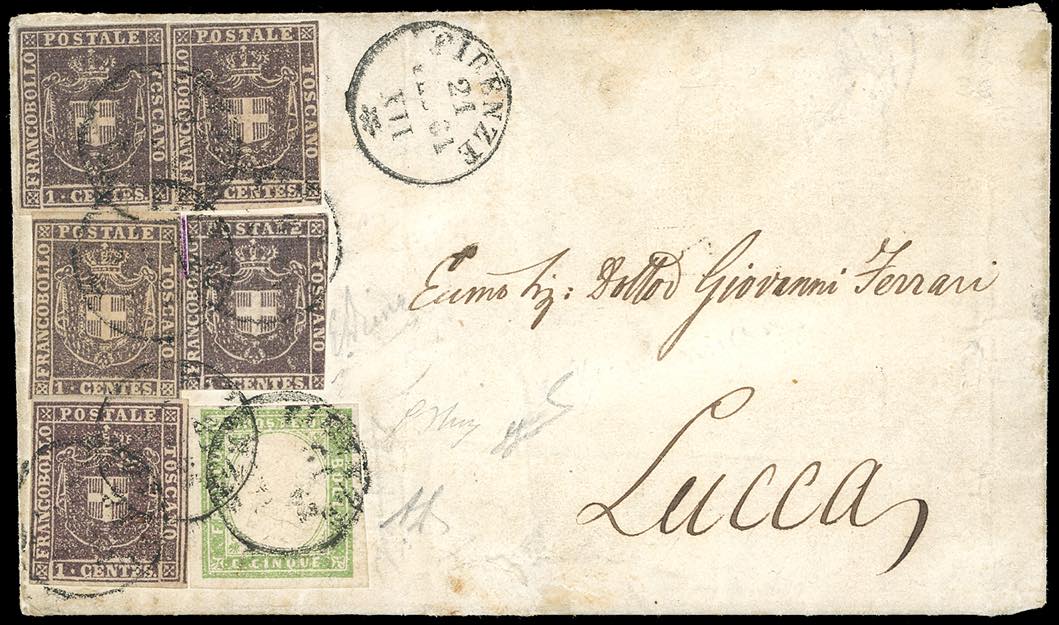 POSTALE
FRANCOBOLLO
TOSCANO
1 - CENTES.
POSTALE
FRANCOBOLLO
TOSCANO
CENTES.
FIRENZE
21
61
III
POSTALE
FRANCOBOLLO
TOSCANO
1 - CENTES.
POSTALE
FRANCOBOLLO
TOSCANO
1 - CENTES
Dottor Giovanni Ferrari
Lucca
POSTALE
FRANCOBOLLO
TOSCANO
1 - CENTES.
C. CINQUE